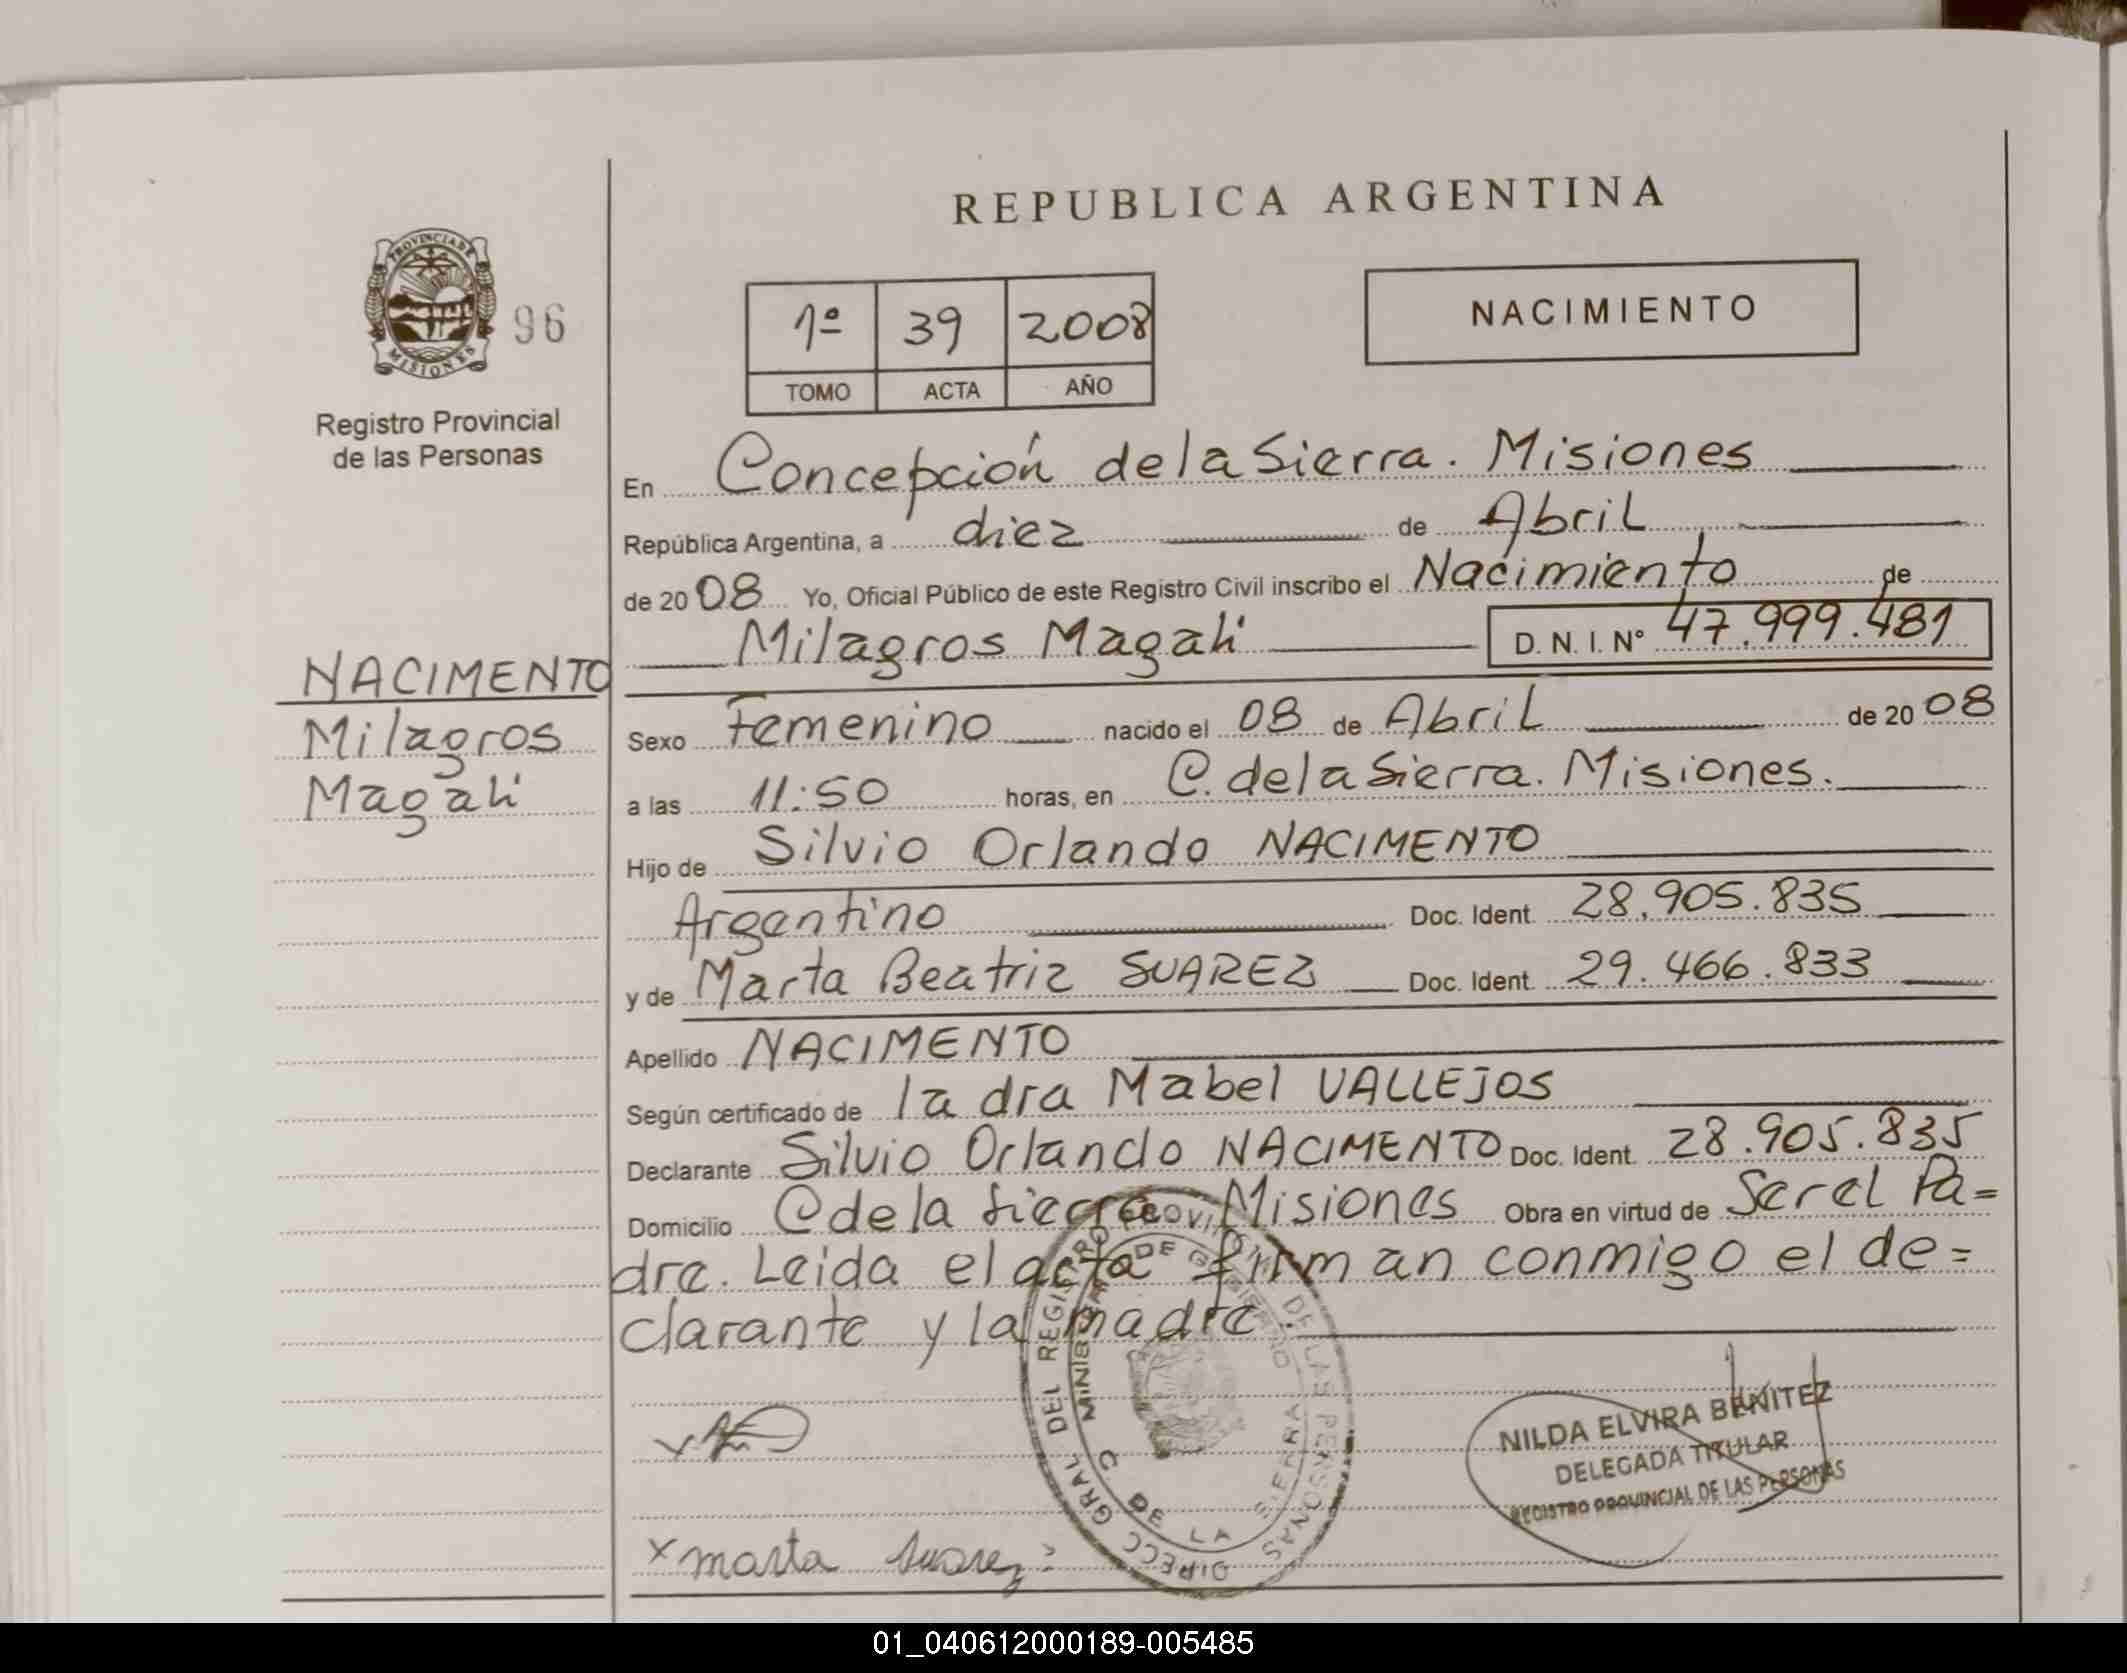 REPUBLICA ARGENTINA
PROVINCIA DE
MISIONES
96
Registro Provincial
de las Personas
1º 39 2008
TOMO ACTA AÑO
NACIMIENTO
En Concepción de la Sierra. Misiones
República Argentina, a diez de Abril
de 2008 Yo, Oficial Público de este Registro Civil inscribo el Nacimiento de
Milagros Magalí D. N. I. Nº 47.999.481
NACIMENTO
Milagros
Magalí
Sexo Femenino nacido el 08 de Abril de 2008
a las 11:50 horas, en C. de la Sierra. Misiones.
Hijo de Silvio Orlando NACIMENTO
Argentino Doc. Ident. 28.905.835
y de Marta Beatriz SUAREZ Doc. Ident. 29.466.833
Apellido NACIMENTO
Según certificado de la dra Mabel VALLEJOS
Declarante Silvio Orlando NACIMENTO Doc. Ident. 28.905.835
Domicilio C de la Sierra Misiones Obra en virtud de Ser el Pa=
dre. Leida el acta firman conmigo el de=
clarante y la madre.
DIRECC GRAL DEL REGISTRO PROVINCIAL DE LAS PERSONAS
MINISTERIO DE GOBIERNO
C DE LA SIERRA
NILDA ELVIRA BENITEZ
DELEGADA TITULAR
REGISTRO PROVINCIAL DE LAS PERSONAS
x marta Suarez
01_040612000189-005485